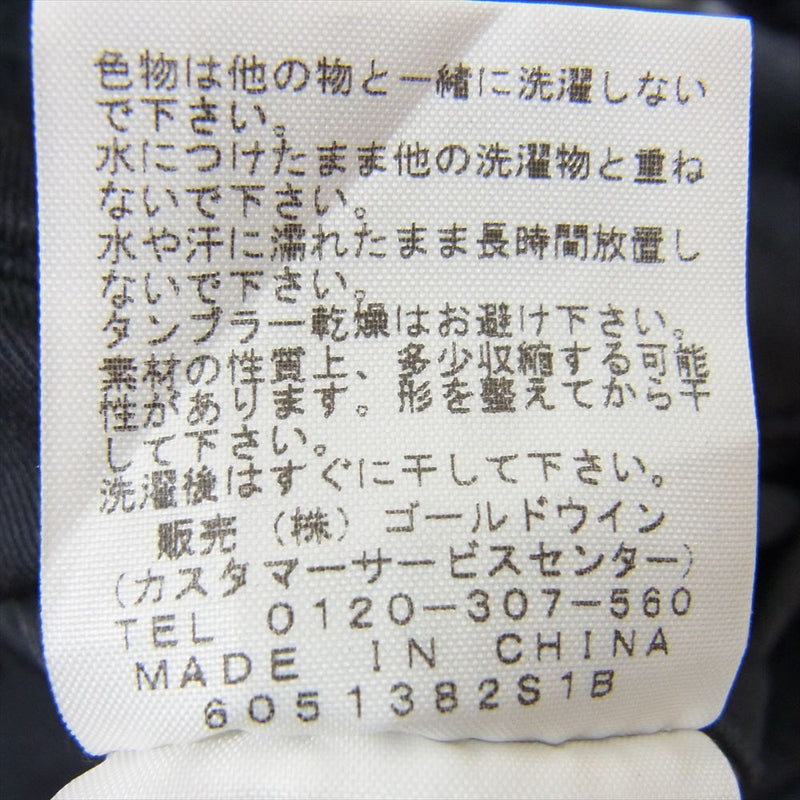 色物は他の物と一緒に洗濯しない
で下さい。
水につけたまま他の洗濯物と重ね
ないで下さい。
水や汗に濡れたまま長時間放置し
ないで下さい。
タンブラー乾燥はお避け下さい。
素材の性質上、多少収縮する可能
性があります。形を整えてから干
して下さい。
洗濯後はすぐに干して下さい。
販売（株）ゴールドウイン
(カスタマーサービスセンター)
TEL 0120-307-560
MADE IN CHINA
6051382S1B